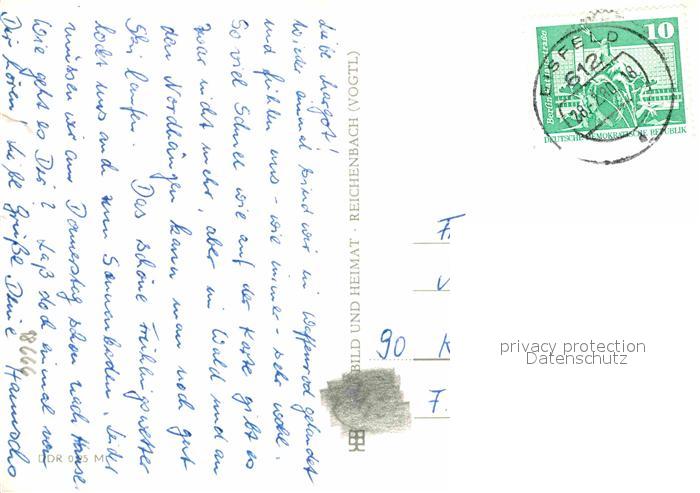 Liebe Margot!
Wieder einmal sind wir in Waffenrod gelandet
und fühlen uns – wie immer – sehr wohl.
So viel Schnee wie auf der Karte gibt es
zwar nicht mehr, aber im Wald und an
den Nordhängen kann man noch gut
Ski laufen. Das schöne Frühlingswetter
lockt uns auch zum Sonnenbaden. Leider
müssen wir am Donnerstag schon nach Hause.
Wie geht es Dir? Laß doch einmal von
Dir hören! Liebe Grüße Deine
98666
DDR 0,25 M
BILD UND HEIMAT · REICHENBACH (VOGTL)
10
Berlin
DEUTSCHE DEMOKRATISCHE REPUBLIK
EISFELD
612
F.
90 K
F.
privacy protection
Datenschutz